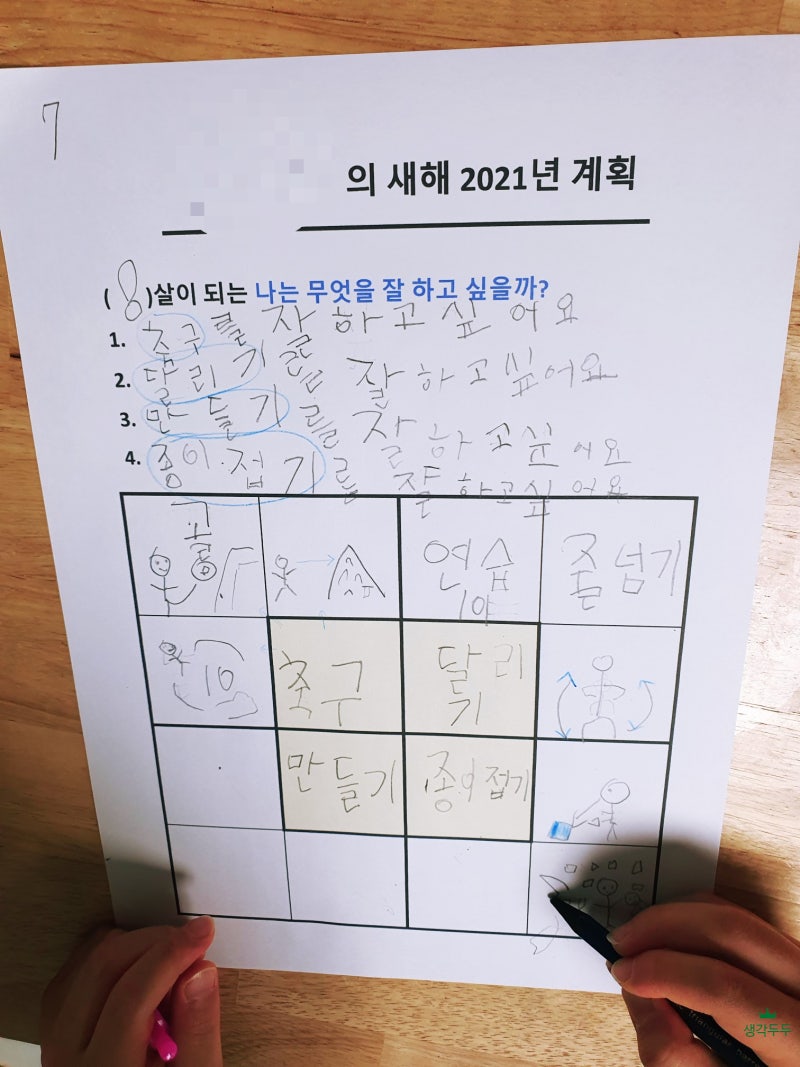 7
의 새해 2021년 계획
(8)살이 되는 나는 무엇을 잘 하고 싶을까?
1. 축구를 잘 하고 싶어요
2. 달리기를 잘 하고 싶어요
3. 만들기를 잘 하고 싶어요
4. 종이접기를 잘 하고 싶어요
연습
줄넘기
10
축구
달리
기
만들기
종이접기
생각두두